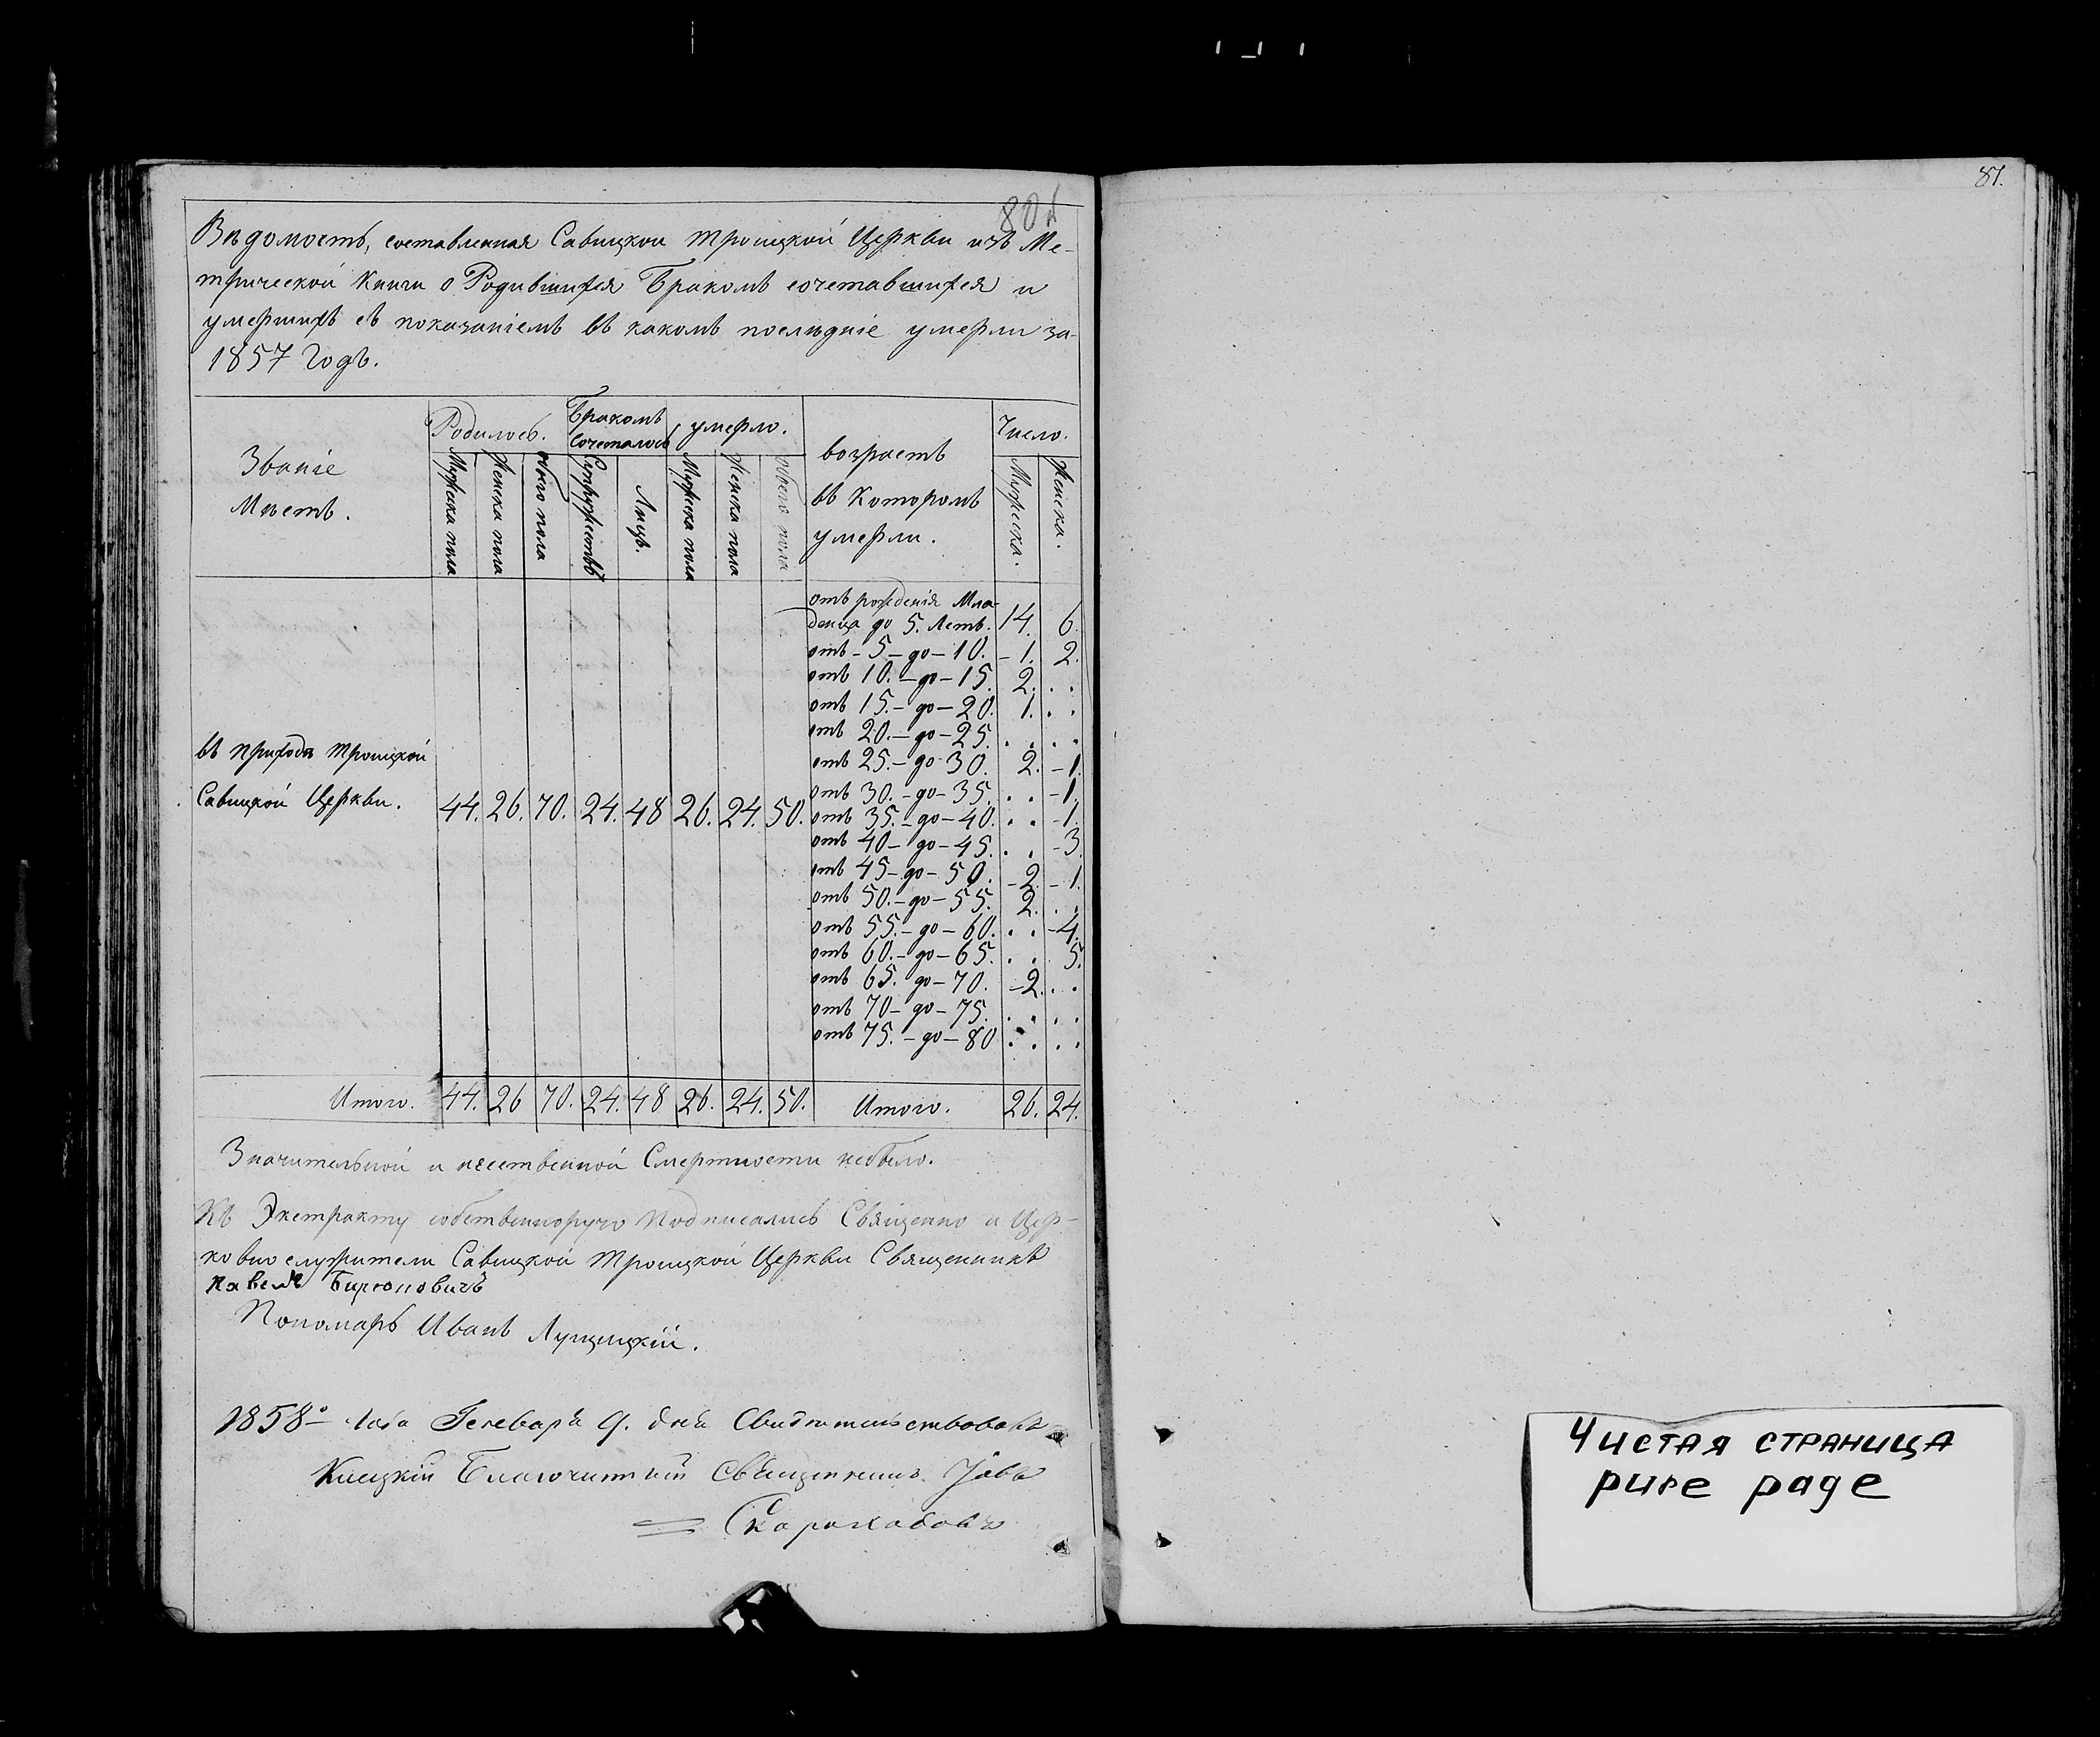 81.
80
Вѣдомость, составленная Савицкой Троицкой Церкви изъ Ме-
трической Книги о Родившихся Бракомъ сочетавшихся и
умершихъ съ показаніемъ въ какомъ послѣдніе умерли за
1857 Годъ.
Званіе Мѣстъ.
Родилось.
Бракомъ Сочеталось
умерло.
возрастъ въ Которомъ умерли.
Число.
Мужеска пола
Женска пола
обоего пола
Супружествъ
Лицъ.
Мужеска пола
Женска пола
обоего пола
Мужеска.
Женска.
отъ рожденія Мла-
денца до 5. Летъ. 14. 6.
отъ - 5 - до - 10. - 1. 2.
отъ 10. - до - 15. 2. . .
отъ 15. - до - 20. 1. . .
отъ 20. - до - 25. . . . .
отъ 25. - до 30. 2. - 1.
отъ 30. - до - 35. . . - 1.
отъ 35. - до - 40. . . - 1.
отъ 40 - до - 45. . . - 3.
отъ 45 - до - 50. - 2. - 1.
отъ 50. - до - 55. 2. . .
отъ 55. - до - 60. . . - 4.
отъ 60. - до - 65. . . 5.
отъ 65. до - 70. - 2. . .
отъ 70 - до - 75. . . . .
отъ 75. - до - 80 . . . .
въ приходѣ Троицкой
Савицкой Церкви. 44. 26. 70. 24. 48 26. 24. 50.
Итого. 44. 26 70. 24. 48 26. 24. 50. Итого. 26. 24.
Значительной и Смертности небыло.
Къ Экстракту собственноручно Подписались Священно и Цер-
ковнослужители Савицкой Троицкой Церкви Священникъ
Павелъ
Пономарь Иванъ Лущицкій.
1858 Года Генваря 9. дня Свидѣтельствовалъ
Клецкій Благочинный Священникъ Іовъ
Чистая страница
pure page